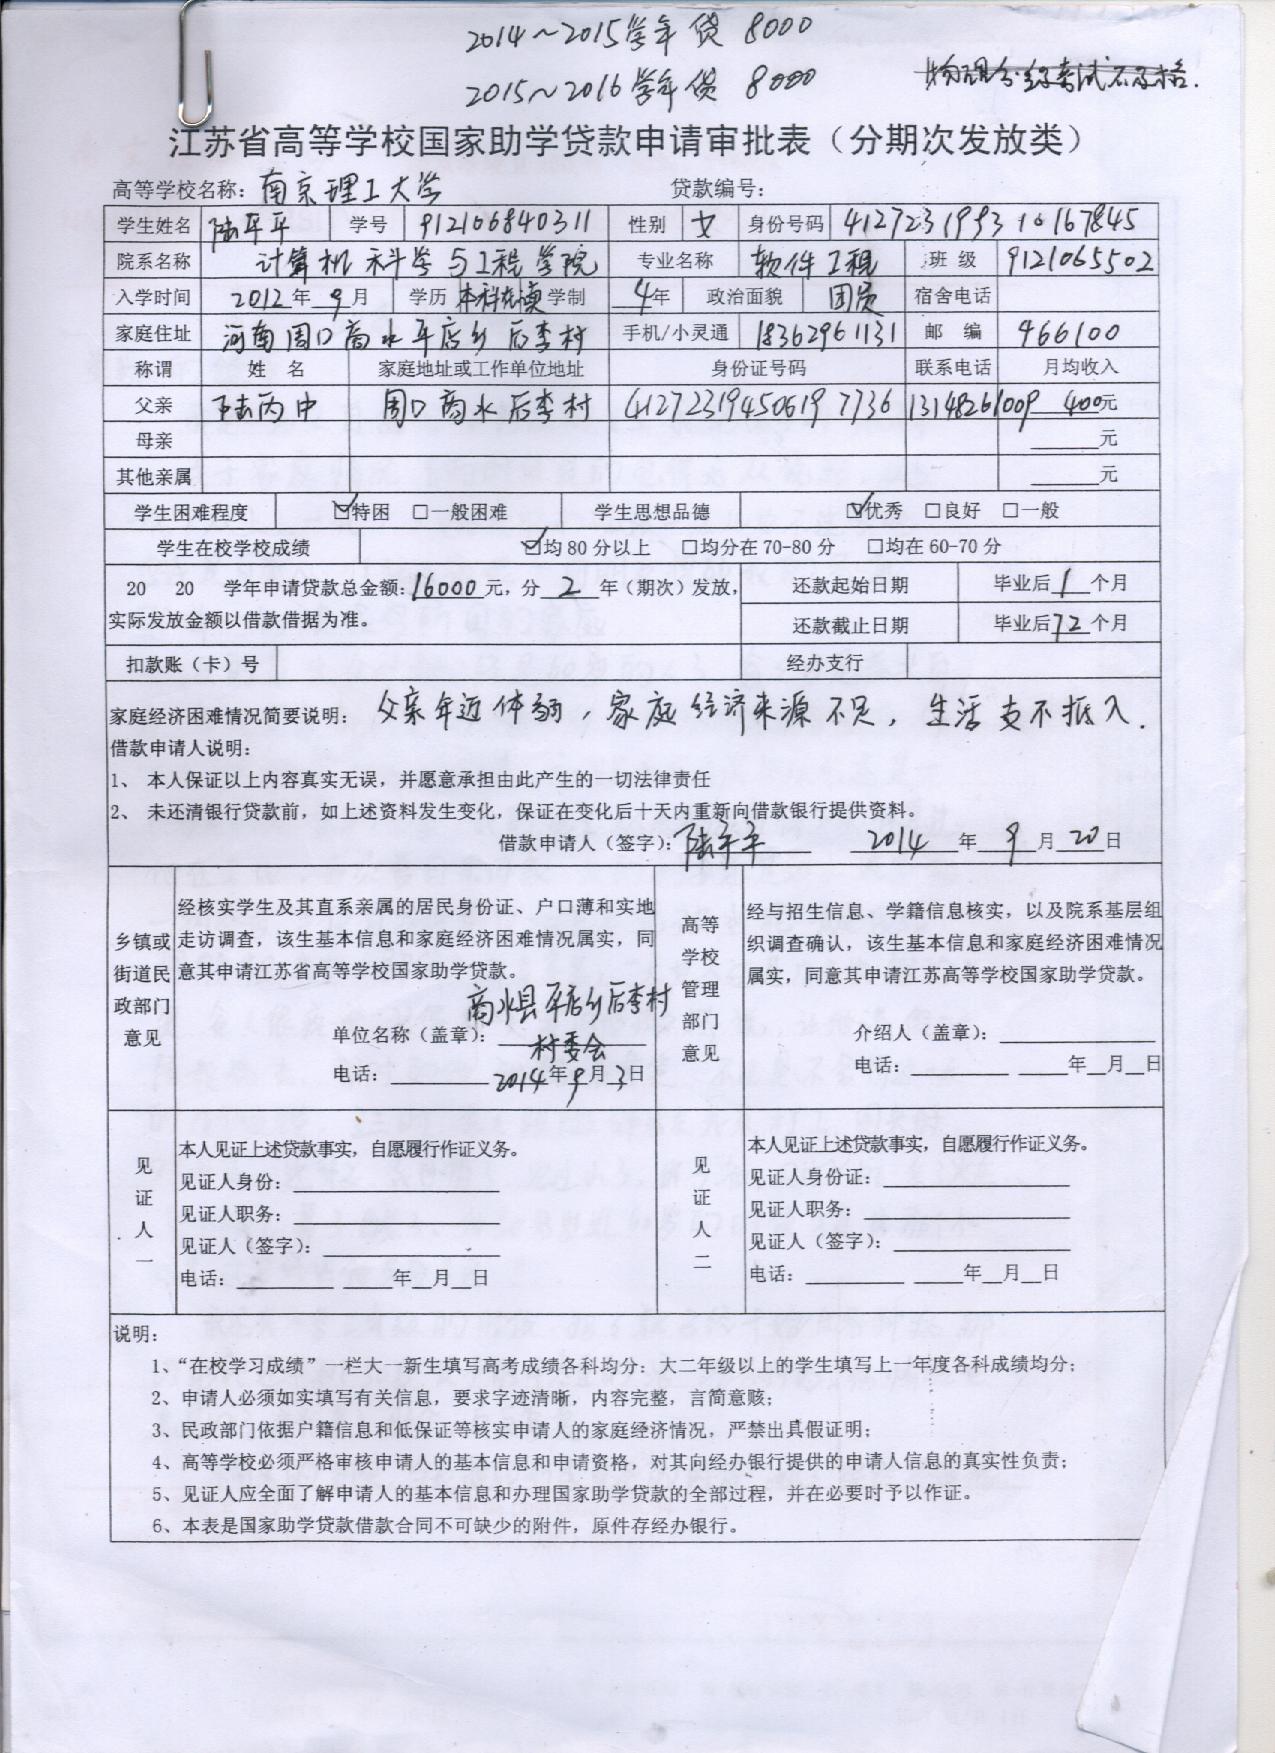 2014～2015学年贷 8000
2015～2016学年贷 8000
江苏省高等学校国家助学贷款申请审批表（分期次发放类）
高等学校名称：南京理工大学 贷款编号：
学生姓名 陆平平 学号 912106840311 性别 女 身份号码 412723199310167845
院系名称 计算机科学与工程学院 专业名称 软件工程 班 级 9121065502
入学时间 2012年9月 学历 本科 学制 4年 政治面貌 团员 宿舍电话
家庭住址 河南周口商水平店乡后李村 手机/小灵通 18362961131 邮 编 466100
称谓 姓 名 家庭地址或工作单位地址 身份证号码 联系电话 月均收入
父亲 陆丙中 周口商水后李村 412723194506197736 13148261009 400元
母亲 元
其他亲属 元
学生困难程度 ☑特困 □一般困难 学生思想品德 ☑优秀 □良好 □一般
学生在校学校成绩 ☑均80分以上 □均分在70-80分 □均在60-70分
20 20 学年申请贷款总金额：16000元，分2年（期次）发放， 还款起始日期 毕业后1个月
实际发放金额以借款借据为准。 还款截止日期 毕业后72个月
扣款账（卡）号 经办支行
家庭经济困难情况简要说明：父亲年近体弱，家庭经济来源不足，生活支不抵入．
借款申请人说明：
1、 本人保证以上内容真实无误，并愿意承担由此产生的一切法律责任
2、 未还清银行贷款前，如上述资料发生变化，保证在变化后十天内重新向借款银行提供资料。
借款申请人（签字）：陆平平 2014年9月20日
乡镇或街道民政部门意见
经核实学生及其直系亲属的居民身份证、户口薄和实地
走访调查，该生基本信息和家庭经济困难情况属实，同
意其申请江苏省高等学校国家助学贷款。
商水县平店乡后李村
单位名称（盖章）：村委会
电话： 2014年9月3日
高等学校管理部门意见
经与招生信息、学籍信息核实，以及院系基层组
织调查确认，该生基本信息和家庭经济困难情况
属实，同意其申请江苏高等学校国家助学贷款。
介绍人（盖章）：
电话： 年 月 日
见证人一
本人见证上述贷款事实，自愿履行作证义务。
见证人身份：
见证人职务：
见证人（签字）：
电话： 年 月 日
见证人二
本人见证上述贷款事实，自愿履行作证义务。
见证人身份证：
见证人职务：
见证人（签字）：
电话： 年 月 日
说明：
1、“在校学习成绩”一栏大一新生填写高考成绩各科均分；大二年级以上的学生填写上一年度各科成绩均分；
2、申请人必须如实填写有关信息，要求字迹清晰，内容完整，言简意赅；
3、民政部门依据户籍信息和低保证等核实申请人的家庭经济情况，严禁出具假证明；
4、高等学校必须严格审核申请人的基本信息和申请资格，对其向经办银行提供的申请人信息的真实性负责；
5、见证人应全面了解申请人的基本信息和办理国家助学贷款的全部过程，并在必要时予以作证。
6、本表是国家助学贷款借款合同不可缺少的附件，原件存经办银行。